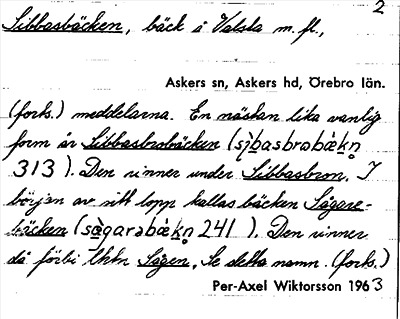 2
Sibbasbäcken, bäck i Valsta m. fl.,
Askers sn, Askers hd, Örebro län.
(forts.) meddelarna. En nästan lika vanlig
form är Sibbasbrobäcken (sìbasbrobæ̀kn̥
313). Den rinner under Sibbasbron. I
början av sitt lopp kallas bäcken Sågare-
bäcken (sågarəbæ̀kn̥ 241). Den rinner
då förbi lht Sågen, Se detta namn. (forts.)
Per-Axel Wiktorsson 1963